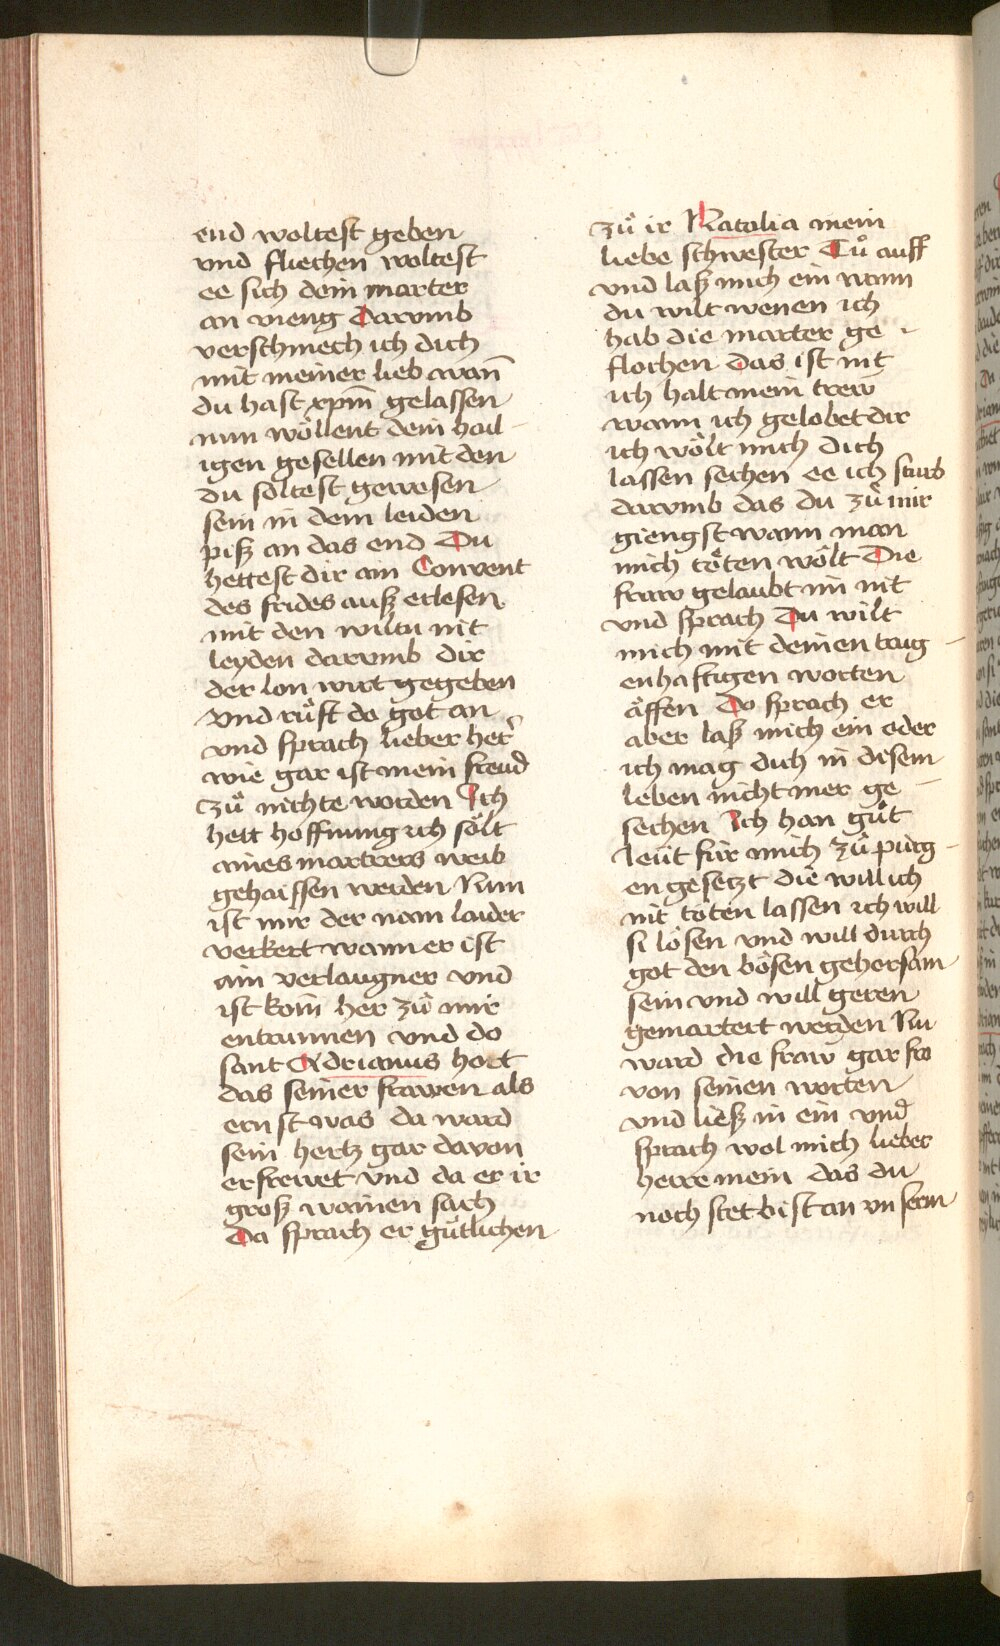 end woltest geben
vnd fliechen woltest
ee sich dein marter
an vieng Darvmb
verschmech ich dich
mit meiner lieb wann̄
du hast xpm̄ gelassen
nun wöllent dein hail-
igen gesellen mit den
du soltest gewesen
sein in dem leiden
piß an das end Du
hettest dir ain Convent
des frides auß erlesen
mit den wiltu nit
leyden darvmb dir
der lon wirt gegeben
Vnd růft do got an
vnd sprach lieber her̄
wie gar ist mein freud
zů nichte worden Ich
hett hoffnung ich sölt
aines martrers weib
gehaissen werden Nun
ist mir der nam laider
verkert wann er ist
ain verlaugner vnd
ist kom̄ her zů mir
entrunnen vnd do
sant Adrianus hort
das seiner frawen als
ernst was da ward
sein hertz gar davon
erfrewet vnd da er ir
groß wainen sach
Da sprach er gütlichen
zů ir Natalia mein
liebe schwester Tů auff
vnd laß mich ein wann
du wilt wenen ich
hab die marter ge-
flochen Das ist nit
ich halt mein trew
wann ich gelobet dir
ich wölt mich dich
lassen sechen ee ich sturb
darvmb das du zů mir
giengst wann man
mich töten wölt Die
fraw gelaubt im nit
vnd sprach Du wilt
mich mit deinen trug-
enhaftigen worten
äffen Do sprach er
aber laß mich ein oder
ich mag dich in disem
leben nicht mer ge-
sechen Ich han gůt
leüt für mich zů pürg-
en gesetzt die will ich
nit töten lassen ich will
si lösen vnd will durch
got den bösen gehorsam
sein vnd will geren
gemartert werden Nu
ward die fraw gar fro
von seinen worten
vnd ließ in ein vnd
sprach wol mich lieber
herre mein das du
noch stet bist an vnserm